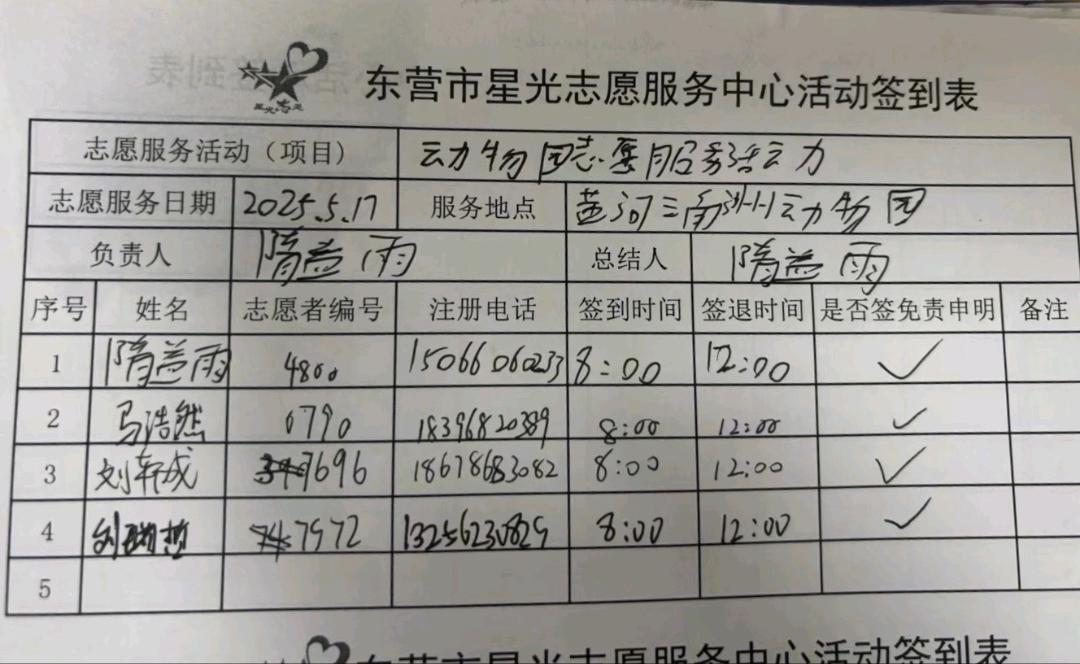 东营市星光志愿服务中心活动签到表
志愿服务活动（项目） 动物园志愿服务活动
志愿服务日期 2025.5.17 服务地点 黄河三角洲动物园
负责人 隋益雨 总结人 隋益雨
序号 姓名 志愿者编号 注册电话 签到时间 签退时间 是否签免责申明 备注
1 隋益雨 4800 15066060233 8:00 12:00 ✓
2 马浩然 0790 18396820389 8:00 12:00 ✓
3 刘轩成 7696 18678683082 8:00 12:00 ✓
4 刘瑞哲 7972 13256230829 8:00 12:00 ✓
5
东营市星光志愿服务中心活动签到表